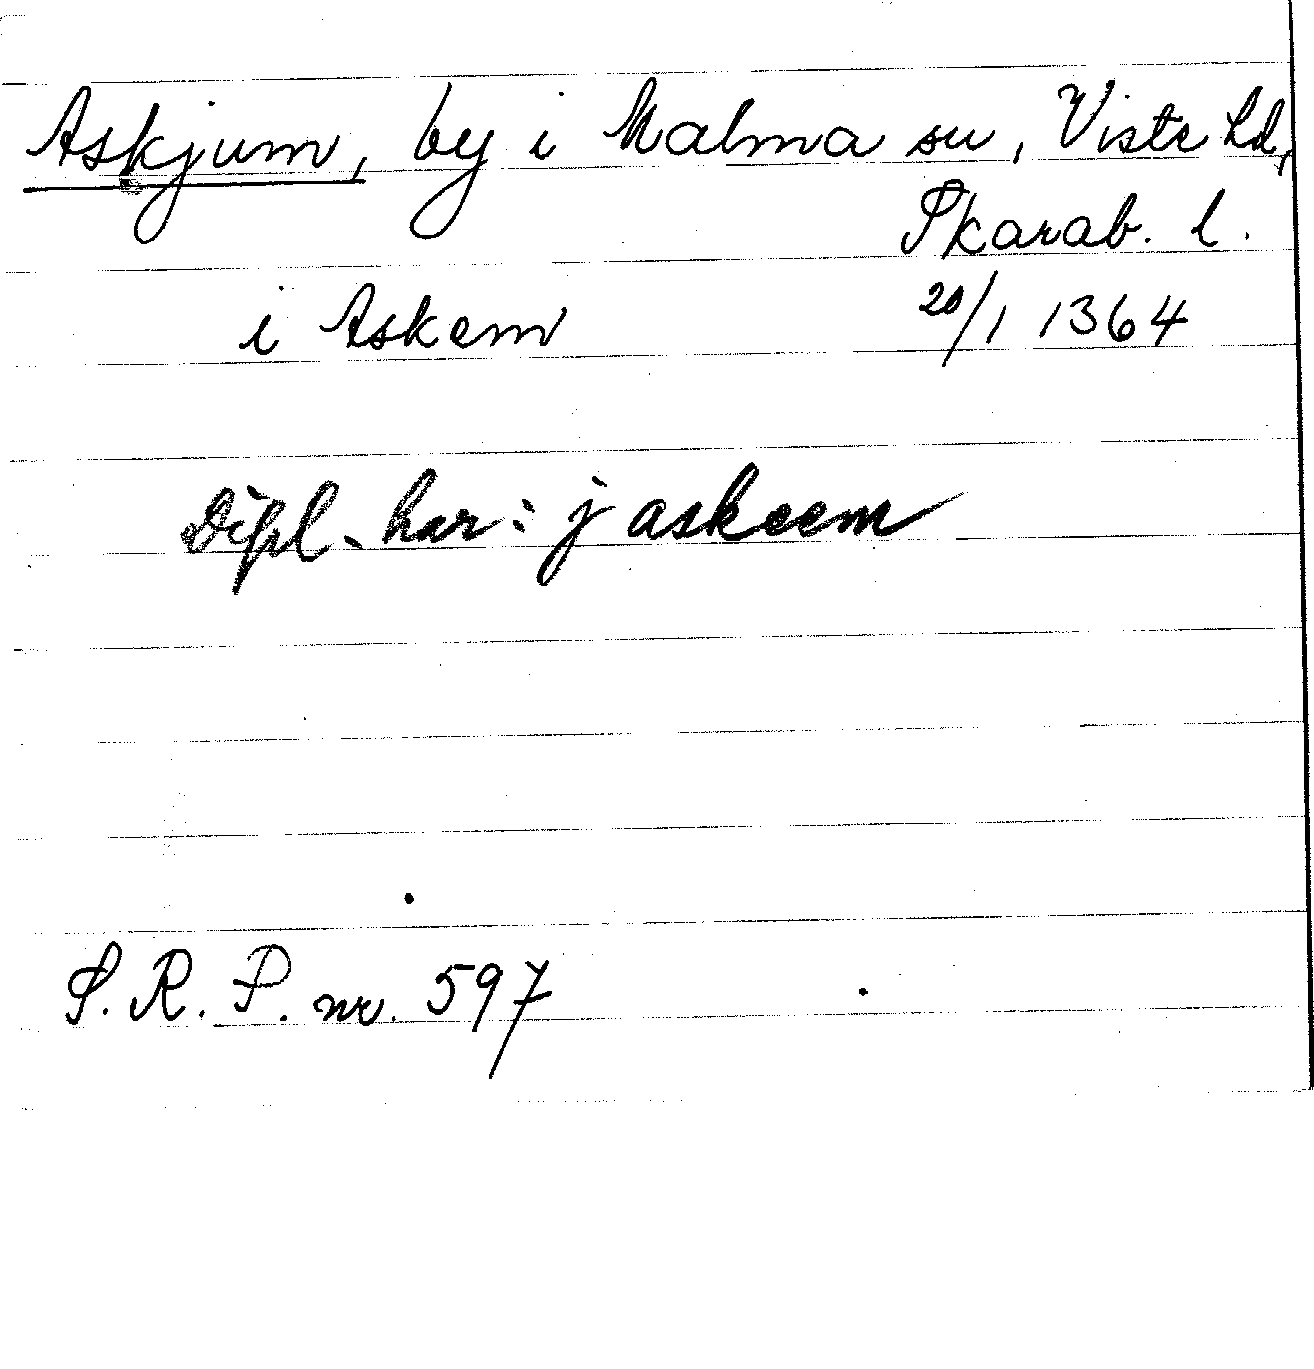 Askjum, by i Malma sn, Viste hd,
Skarab. l.
i Askem 20/1 1364
Dipl. har: j askeem
S. R. P. nr. 597